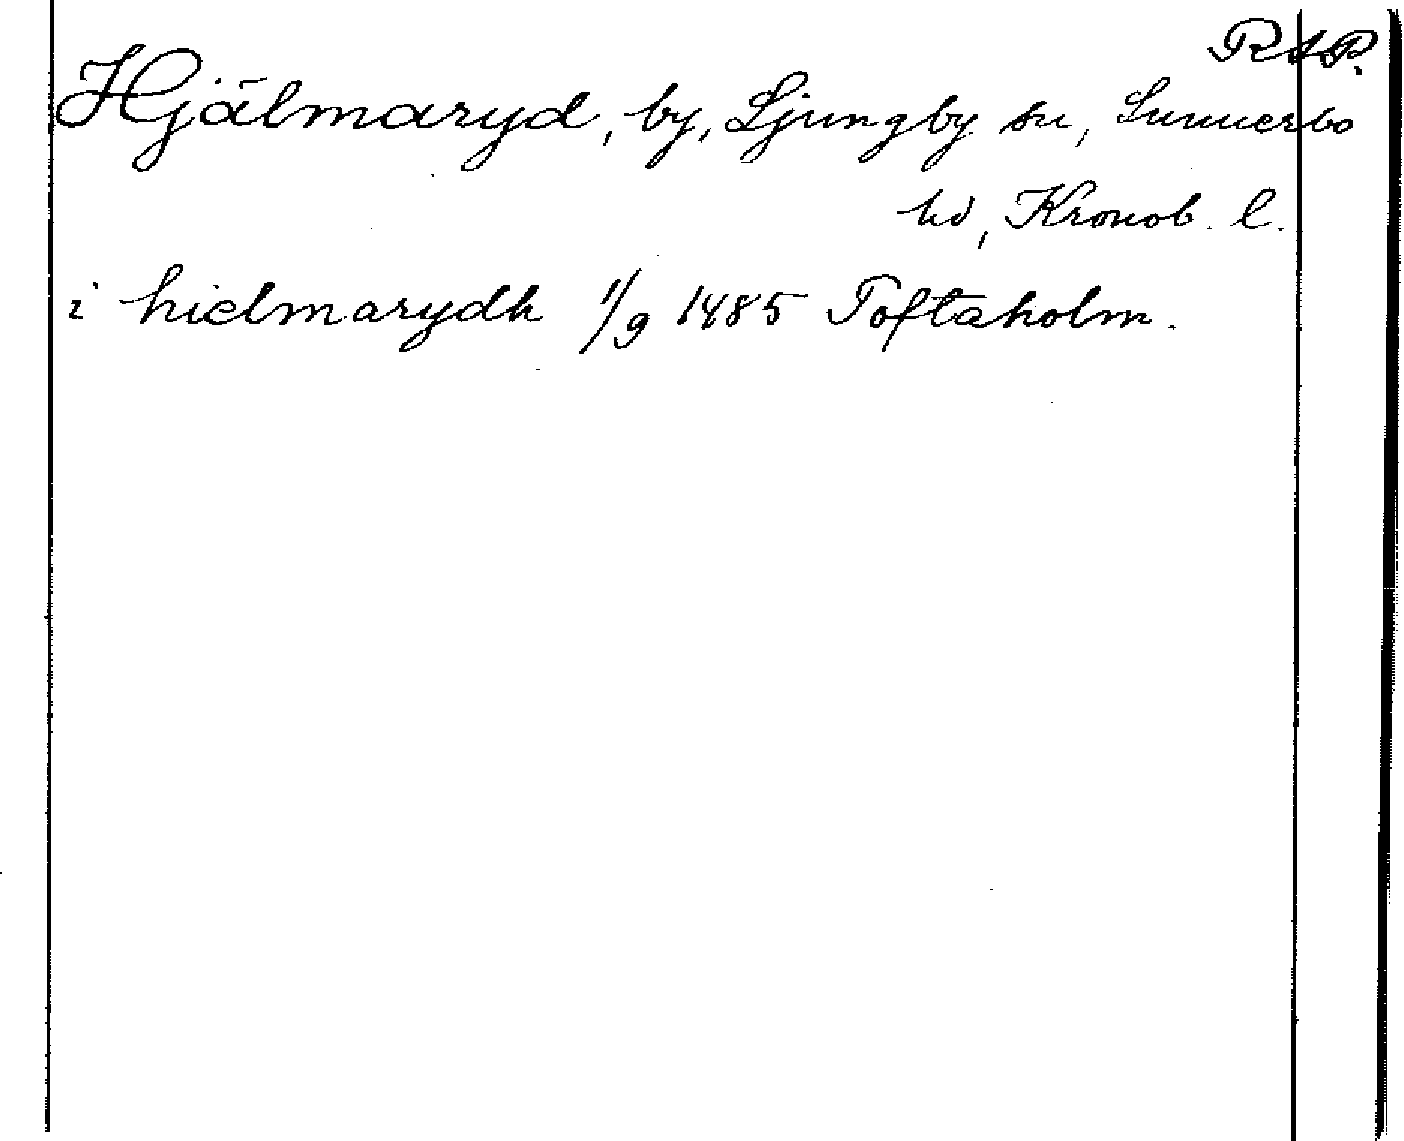 RAP.
Hjälmaryd, by, Ljungby sn, Sunnerbo
hd, Kronob. l.
i hielmarydh 1/9 1485 Toftaholm.